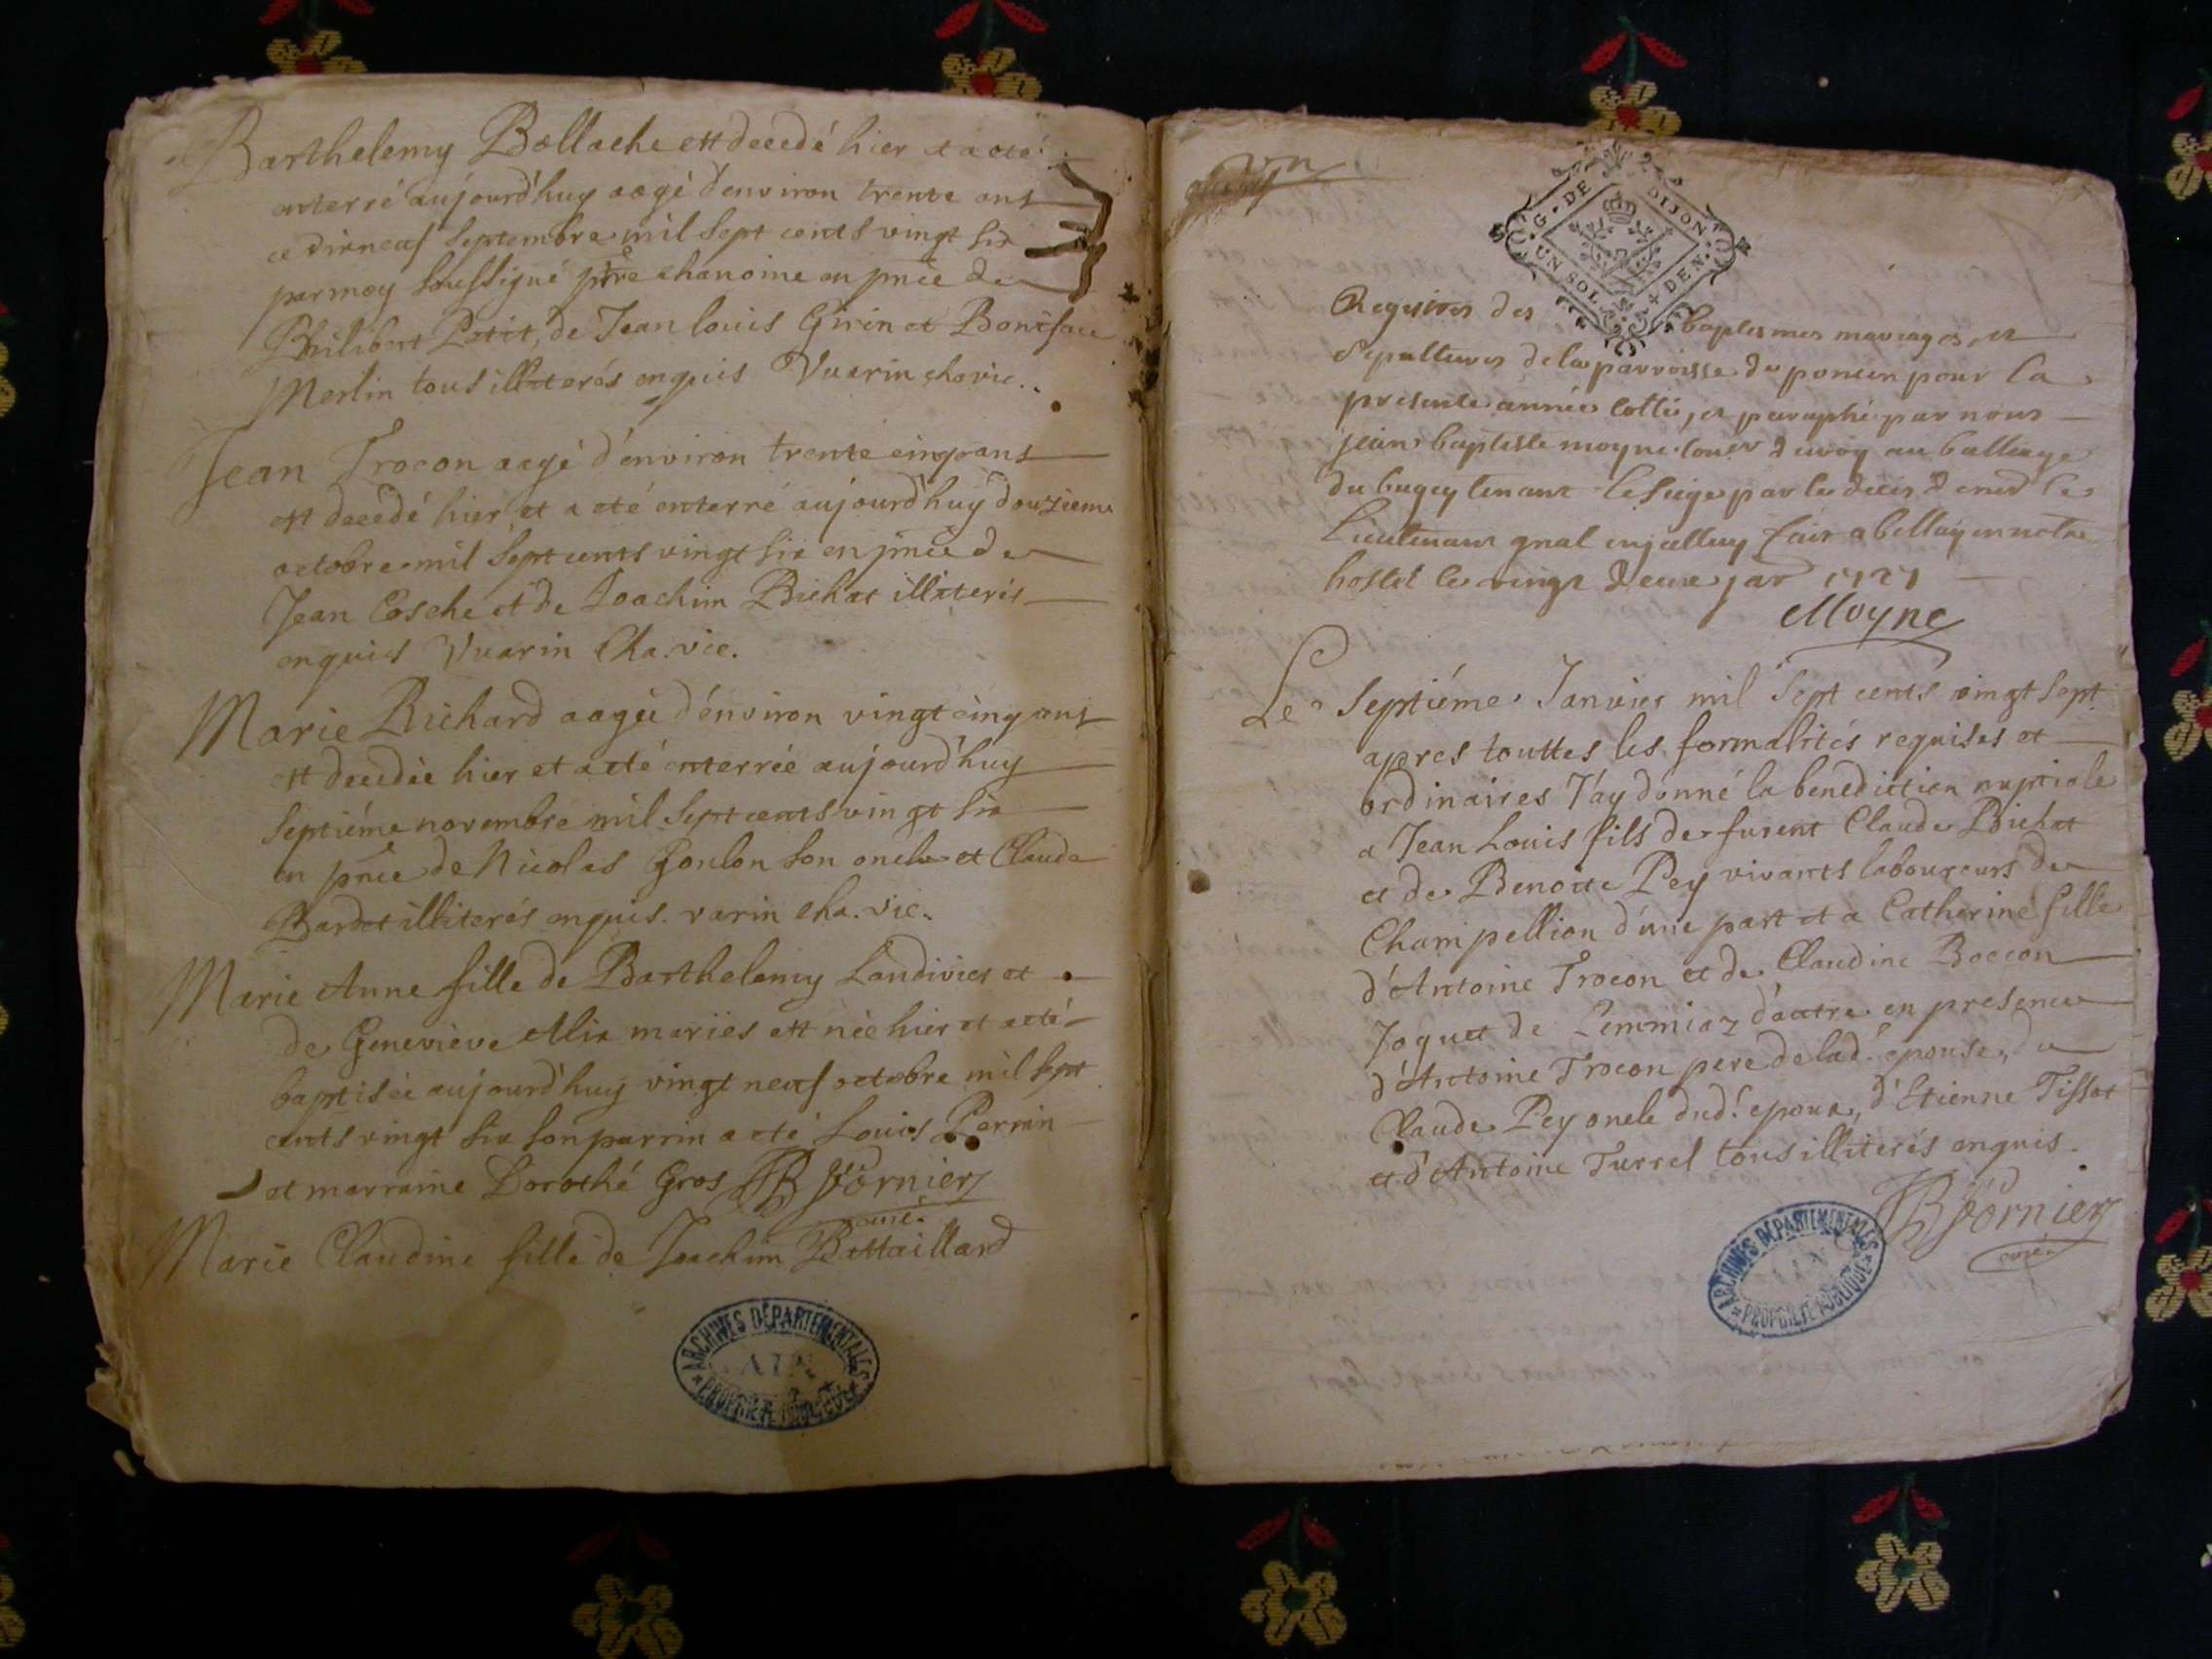 Barthelemy Bollache est decedé hier et a eté
enterré aujourd'huy aagé d'environ trente ans
ce dixneuf Septembre mil sept cents vingt six
par moy soussigné ptre chanoine en pnce de
Philibert Petit, de Jean louis Girin et Boniface
Merlin tous illiterés enquis Vuarin cha vic.
Jean Trocon aagé d'environ trente cinq ans
est decedé hier et a eté enterré aujourd'huy douzieme
octobre mil sept cents vingt six en pnce de
Jean Cosche et de Joachim Bichat illiterés
enquis Vuarin Cha. vic.
Marie Richard aagée d'environ vingt cinq ans
est decedée hier et a eté enterrée aujourd'huy
septiéme novembre mil sept cents vingt six
en pnce de Nicolas Goulon son oncle et Claude
Bardet illiterés enquis. varin cha. vic.
Marie Anne fille de Barthelemy Landivier et
de Geneviéve Mix mariés est née hier et a eté
baptisée aujourd'huy vingt neuf octobre mil sept
cents vingt six son parrin a eté Louis Perrin
et marraine Dorothé Gros JB fornier
curé.
Marie Claudine fille de Joachim Battaillard
ARCHIVES DÉPARTEMENTALES
AIN
PROPRIÉTÉ PUBLIQUE
G. DE DIJON
UN SOL DEN.
Registres des baptesmes mariages, et
sepultures de la parroisse de poncin pour la
presente année cotté, et paraphé par nous
jean baptiste moyne coner du roy au balliage
du bugey tenant le siege par le deces de mr le
Lieutenant gnal fait a bellay en notre
hostel le vingt deux jar 1727
Moyne
Le Septiéme Janvier mil sept cents vingt sept
apres touttes les formalités requises et
ordinaires J'ay donné la benediction nuptiale
a Jean Louis fils de furent Claude Bichat
et de Benoite Pey vivants laboureurs de
Champellion d'une part et a Catherine fille
d'Antoine Trocon et de Claudine Boccon
Joguet de Lemmiaz d'autre en presence
d'Antoine Trocon pere de lad. epouse, de
Claude Pey oncle dud. epoux, d'Etienne Tissot
et d'Antoine Turrel tous illiterés enquis.
JB fornier
curé
ARCHIVES DÉPARTEMENTALES
AIN
PROPRIÉTÉ PUBLIQUE